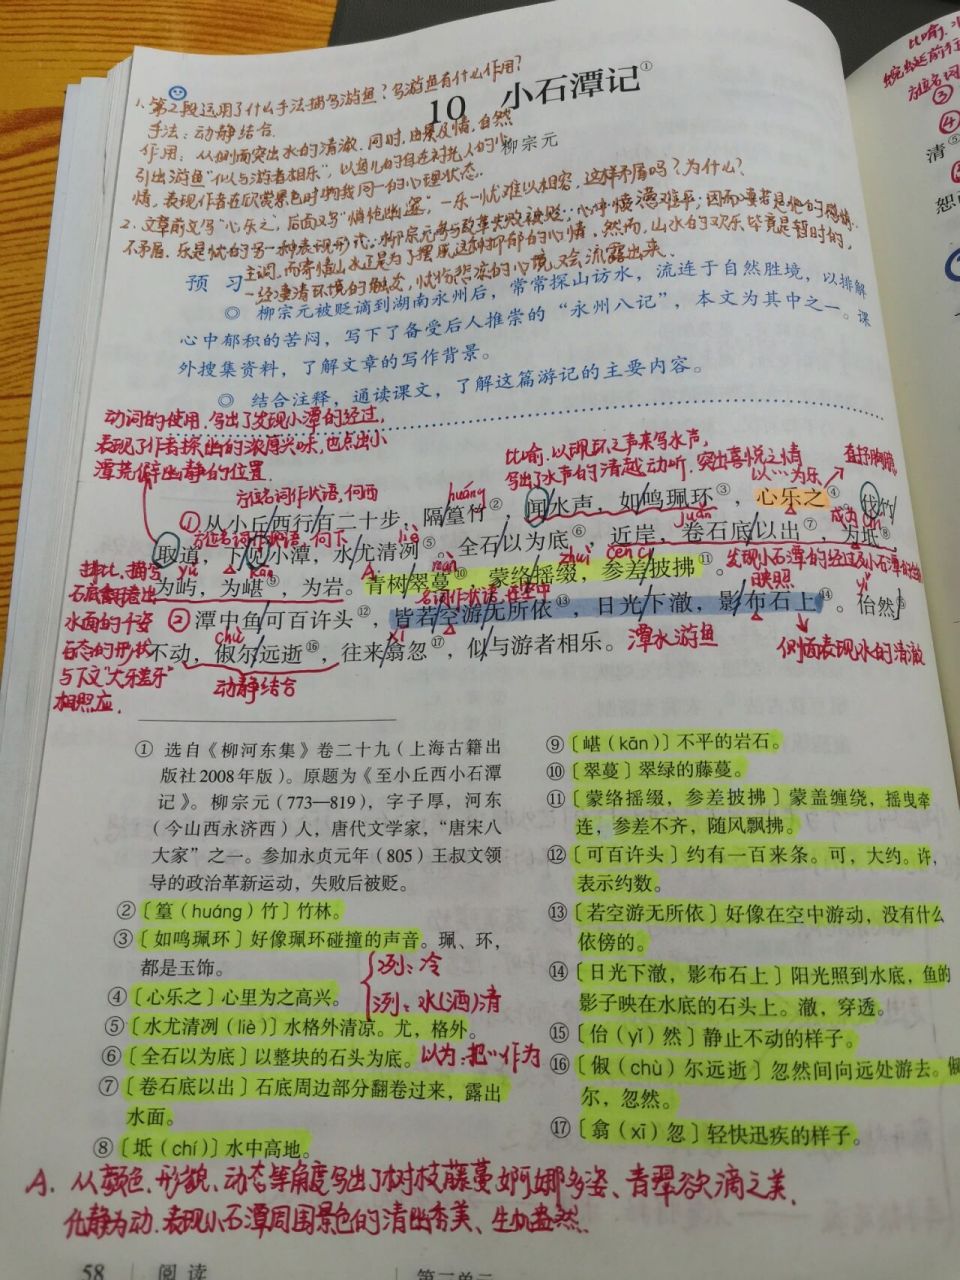 1、第2段运用了什么手法描写游鱼？写游鱼有什么作用？
手法：动静结合.
作用：从侧面突出水的清澈.同时,由景及情,自然
引出游鱼“似与游者相乐”,以鱼儿的自在衬托人的心
情,表现作者在欣赏景色时物我同一的心理状态.
10 小石潭记①
柳宗元
2、文章前文写“心乐之”,后面又写“悄怆幽邃”,一乐一忧难以相容,这样矛盾吗？为什么？
不矛盾.乐是忧的另一种表现形式.柳宗元参与改革失败被贬,心中愤懑难平,因而凄苦是他的感情
主调,而寄情山水正是为了摆脱这种抑郁的心情,然而,山水的欢乐毕竟是暂时的,
一经凄清环境的触发,忧伤悲凉的心境又会流露出来.
预 习
◎ 柳宗元被贬谪到湖南永州后，常常探山访水，流连于自然胜境，以排解
心中郁积的苦闷，写下了备受后人推崇的“永州八记”，本文为其中之一。课
外搜集资料，了解文章的写作背景。
◎ 结合注释，通读课文，了解这篇游记的主要内容。
动词的使用,写出了发现小潭的经过,
表现了作者探幽的浓厚兴味,也点出小
潭荒僻幽静的位置.
比喻.以佩环之声来写水声,
写出了水声的清越动听.突出喜悦之情
以…为乐
直抒胸臆
方位名词作状语,向西
huáng
①从小丘西行百二十步，隔篁竹②，闻水声，如鸣珮环③，心乐之④。伐竹
方位名词作状语,向下
juǎn
成为 chí
取道，下见小潭，水尤清冽⑤。全石以为底⑥，近岸，卷石底以出⑦，为坻⑧，
yǔ
kān
zhuì
cēn cī
为屿，为嵁⑨，为岩。青树翠蔓⑩，蒙络摇缀，参差披拂⑪。
A.
发现小石潭的经过及小石潭的
排比,描写
石底翻卷出
水面的千姿
百态的形状
与下文“犬牙差互”
相照应.
名词作状语,在空中
映照
yǐ
②潭中鱼可百许头⑫，皆若空游无所依⑬，日光下澈，影布石上⑭。佁然⑮
chù
xī
不动，俶尔远逝⑯，往来翕忽⑰，似与游者相乐。
动静结合
潭水游鱼
侧面表现水的清澈
① 选自《柳河东集》卷二十九（上海古籍出
版社2008年版）。原题为《至小丘西小石潭
记》。柳宗元（773—819），字子厚，河东
（今山西永济西）人，唐代文学家，“唐宋八
大家”之一。参加永贞元年（805）王叔文领
导的政治革新运动，失败后被贬。
②〔篁（huáng）竹〕竹林。
③〔如鸣珮环〕好像珮环碰撞的声音。珮、环，
都是玉饰。
④〔心乐之〕心里为之高兴。
冽：冷
洌：水(酒)清
⑤〔水尤清冽（liè）〕水格外清凉。尤，格外。
⑥〔全石以为底〕以整块的石头为底。
以为：把…作为
⑦〔卷石底以出〕石底周边部分翻卷过来，露出
水面。
⑧〔坻（chí）〕水中高地。
⑨〔嵁（kān）〕不平的岩石。
⑩〔翠蔓〕翠绿的藤蔓。
⑪〔蒙络摇缀，参差披拂〕蒙盖缠绕，摇曳牵
连，参差不齐，随风飘拂。
⑫〔可百许头〕约有一百来条。可，大约。许，
表示约数。
⑬〔若空游无所依〕好像在空中游动，没有什么
依傍的。
⑭〔日光下澈，影布石上〕阳光照到水底，鱼的
影子映在水底的石头上。澈，穿透。
⑮〔佁（yǐ）然〕静止不动的样子。
⑯〔俶（chù）尔远逝〕忽然间向远处游去。俶
尔，忽然。
⑰〔翕（xī）忽〕轻快迅疾的样子。
A. 从颜色、形貌、动态等角度写出了树枝藤蔓婀娜多姿、青翠欲滴之美.
化静为动.表现小石潭周围景色的清幽秀美、生机盎然.
58 阅 读
第三单元